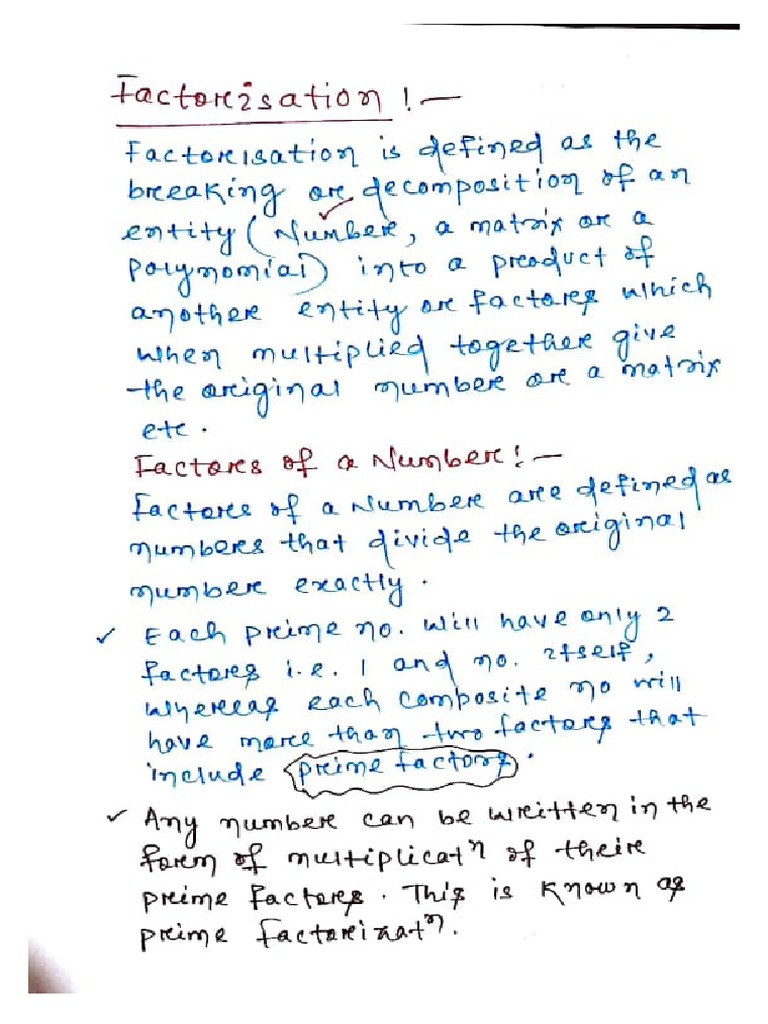 Factorisation :-
Factorisation is defined as the
breaking or decomposition of an
entity (Number, a matrix or a
polynomial) into a product of
another entity or factors which
when multiplied together give
the original number or a matrix
etc.
Factors of a Number :-
Factors of a Number are defined as
numbers that divide the original
number exactly.
✓ Each prime no. will have only 2
factors i.e. 1 and no. itself,
whereas each composite no will
have more than two factors that
include prime factors.
✓ Any number can be written in the
form of multiplicatⁿ of their
prime factors. This is known as
prime factorizatⁿ.